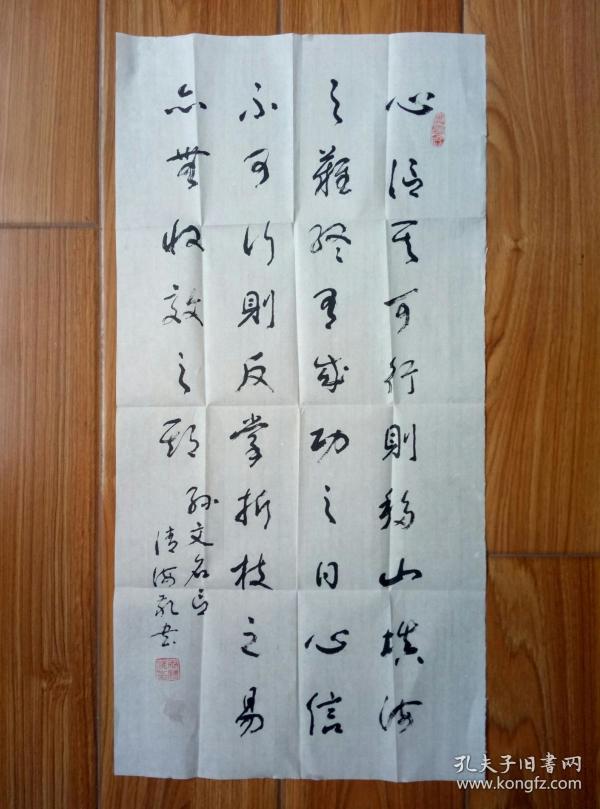 心信其可行則移山填海
之難終有成功之日心信
不可行則反掌折枝之易
亦無收效之期
孫文名言
清海敬書
孔夫子旧书网
www.kongfz.com